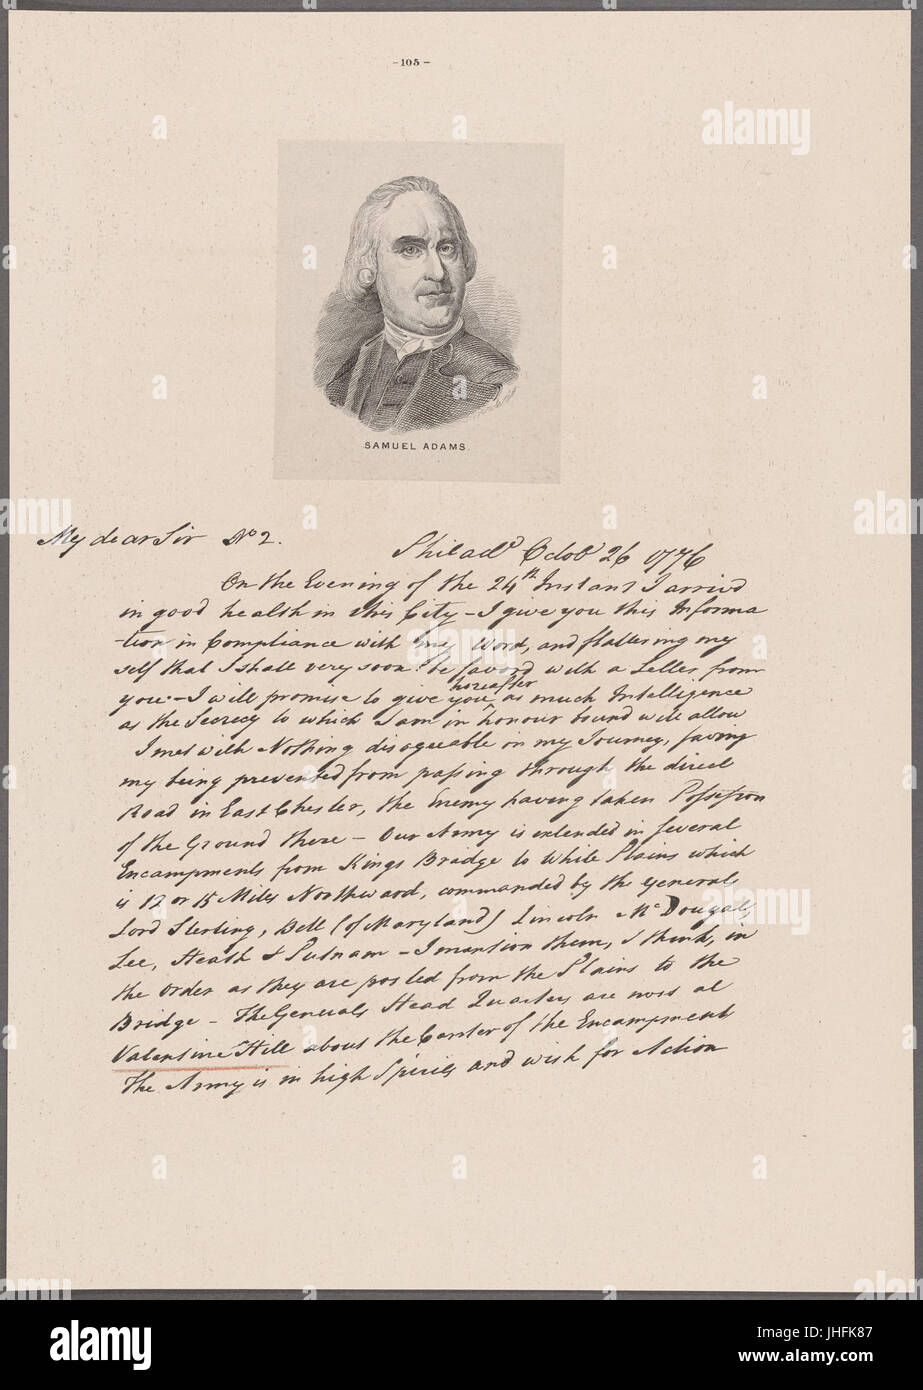 -105-
SAMUEL ADAMS.
My dear Sir No 2.
Philadª Octobʳ 26 1776
On the Evening of the 24th Instant I arrivd
in good health in this City - I give you this Informa
-tion in Compliance with my Word, and flattering my
self that I shall very soon be favord with a Letter from
you - I will promise to give you hereafter as much Intelligence
as the Secrecy to which I am in honour bound will allow
I met with Nothing disagreable in my Journey, saving
my being prevented from passing through the direct
Road in East Chester, the Enemy having taken Possession
of the Ground there - Our Army is extended in several
Encampments from Kings Bridge to White Plains which
is 12 or 15 Miles Northward, commanded by the Generals
Lord Sterling, Bell (of Maryland) Lincoln McDougal,
Lee, Heath & Putnam - I mention them, I think, in
the order as they are posted from the Plains to the
Bridge - The Generals Head Quarters are now at
Valentine Hill about the Center of the Encampment
The Army is in high Spirits and wish for Action
alamy
alamy
Image ID: JHFK87
www.alamy.com